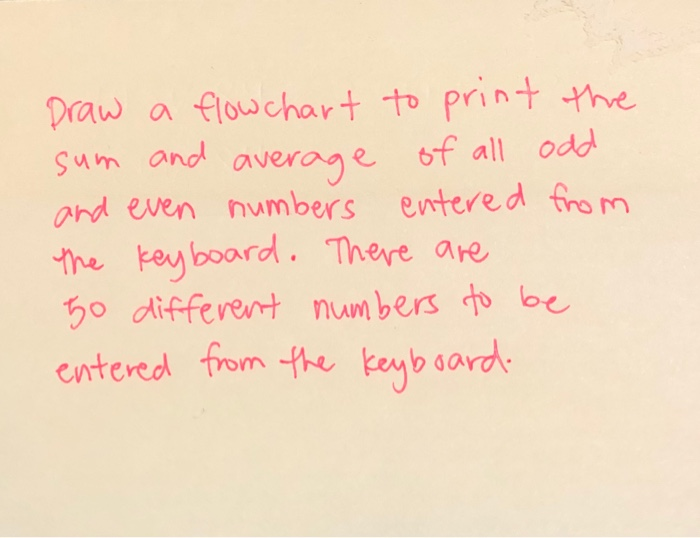 Draw a flowchart to print the
sum and average of all odd
and even numbers entered from
the keyboard. There are
50 different numbers to be
entered from the keyboard.